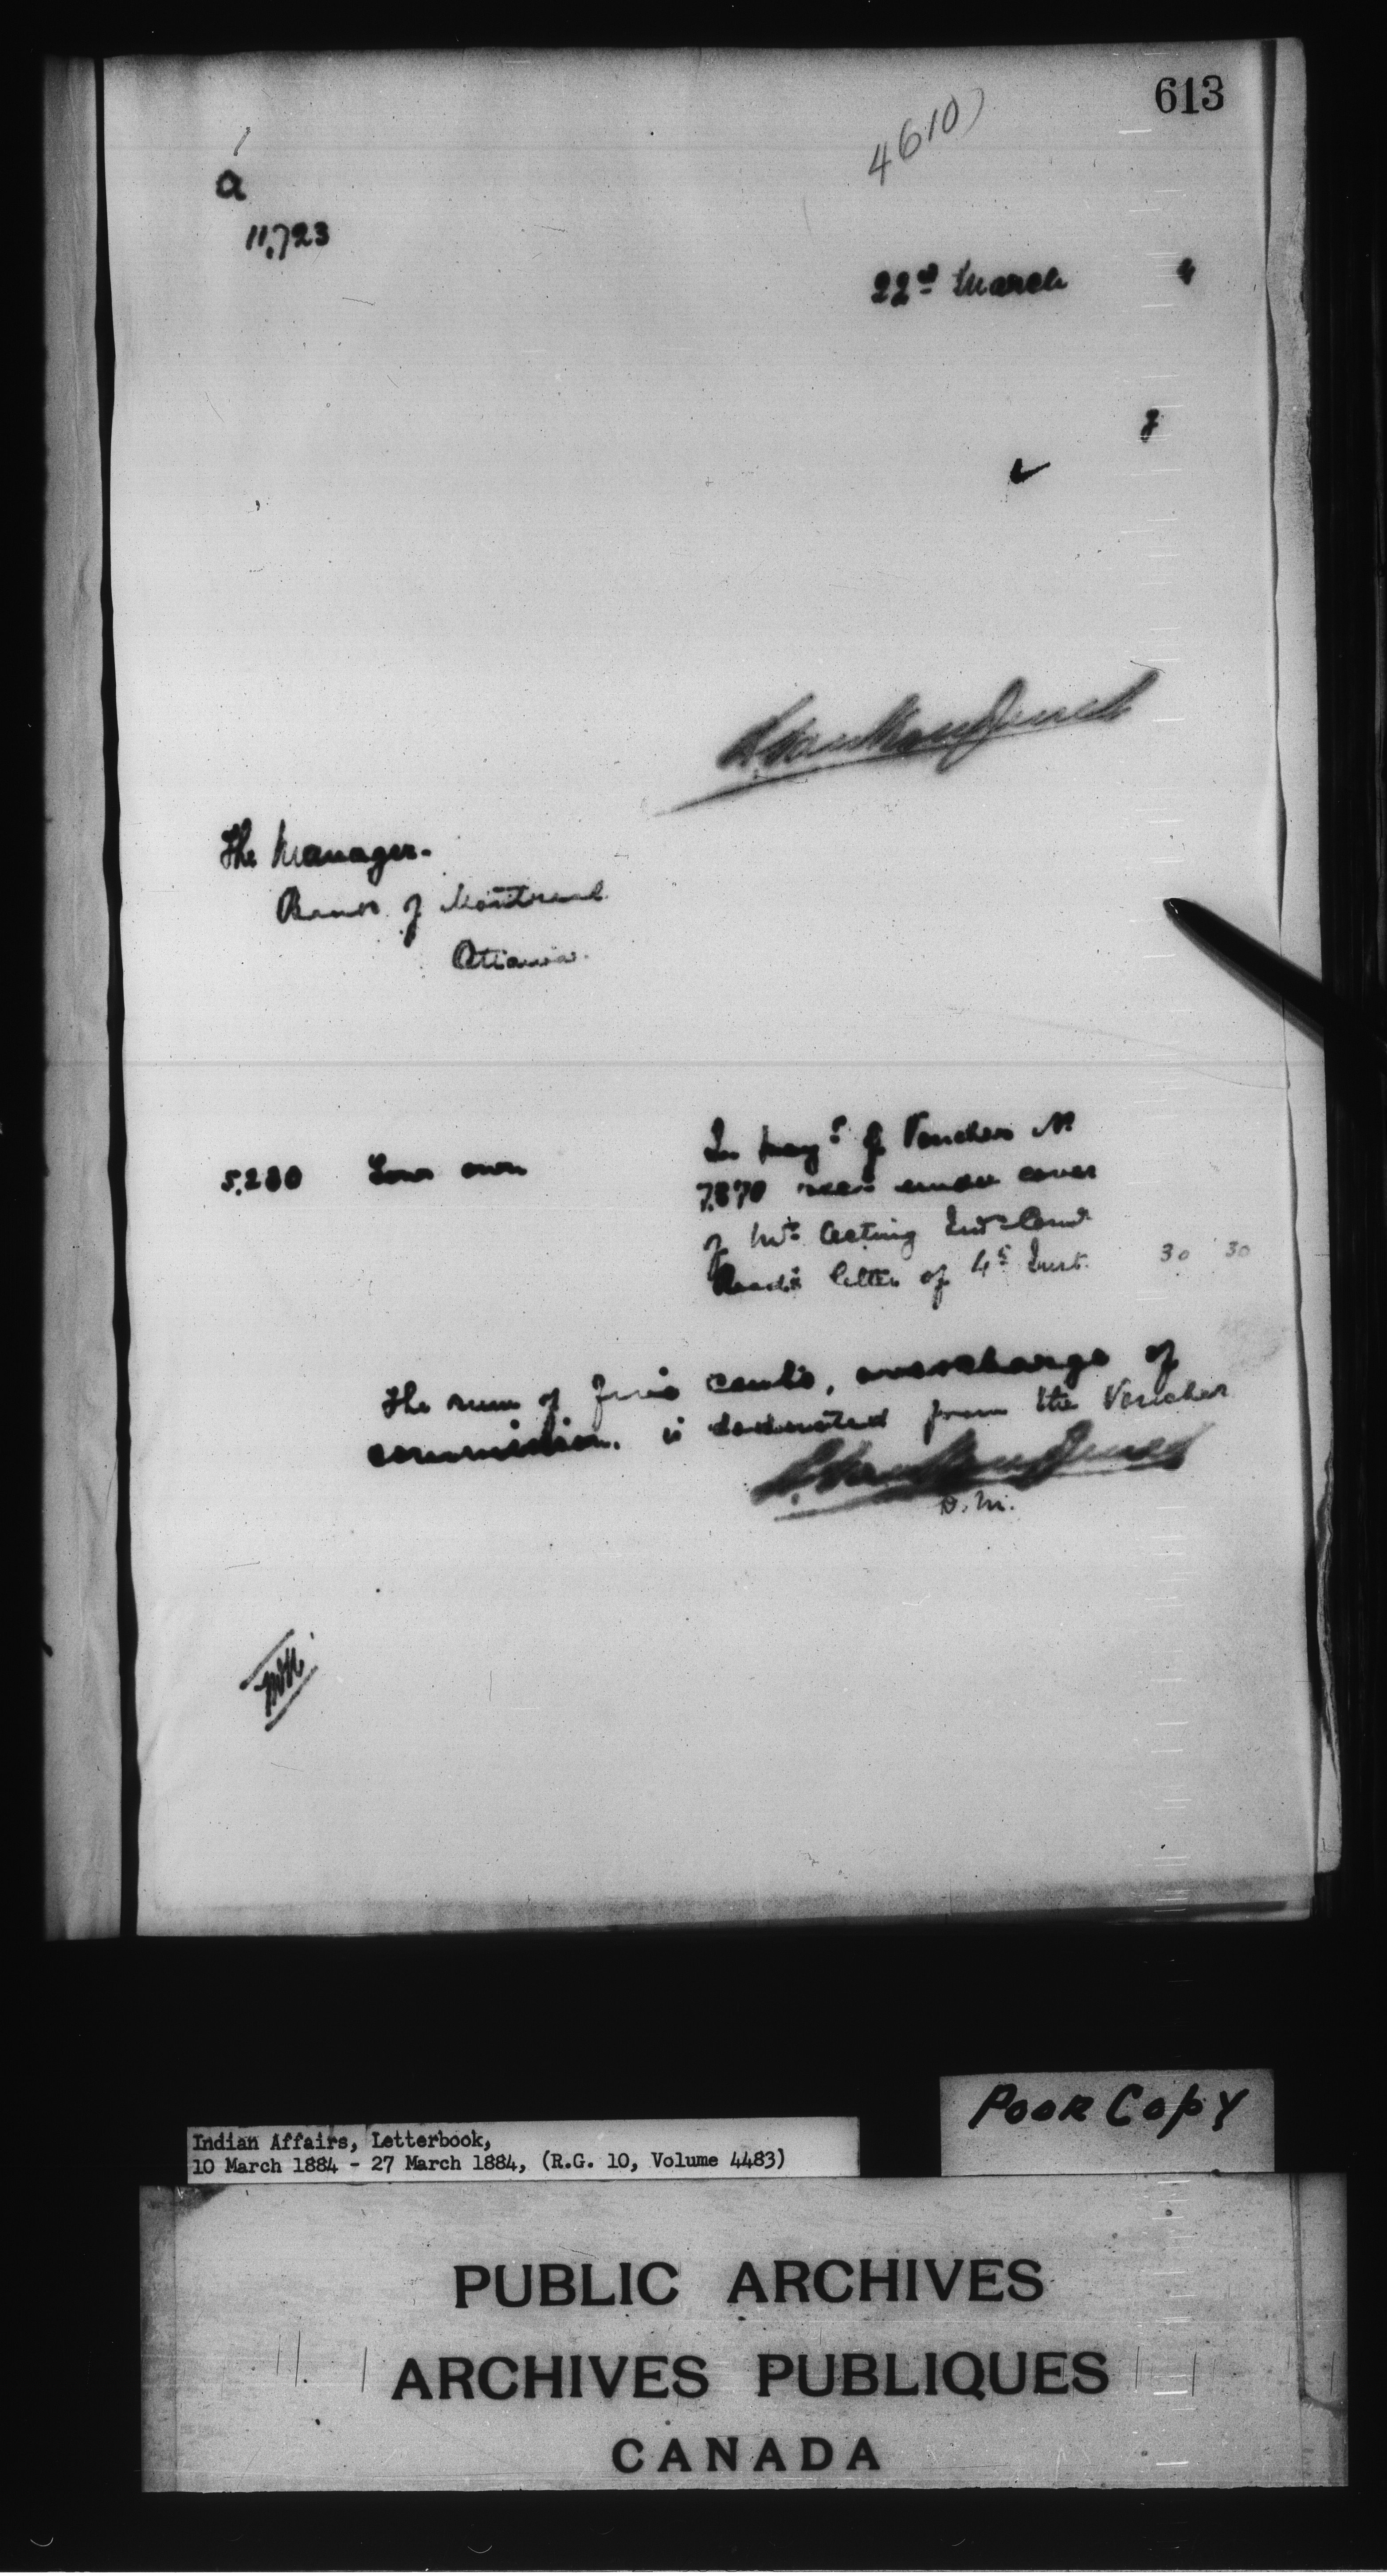 613
4610)
a
11,723
22nd March 4
The Manager.
Bank of Montreal
Ottawa.
5,280 Your own
In pay't of Voucher No
7,870 rec'd under cover
of Mr. Acting Ind. Com'r
Reed's letter of 4th Inst. 30 30
The sum of five cents, overcharge of
commission, is deducted from the Voucher
L. Vankoughnet
D. M.
Poor Copy
Indian Affairs, Letterbook,
10 March 1884 - 27 March 1884, (R.G. 10, Volume 4483)
PUBLIC ARCHIVES
ARCHIVES PUBLIQUES
CANADA